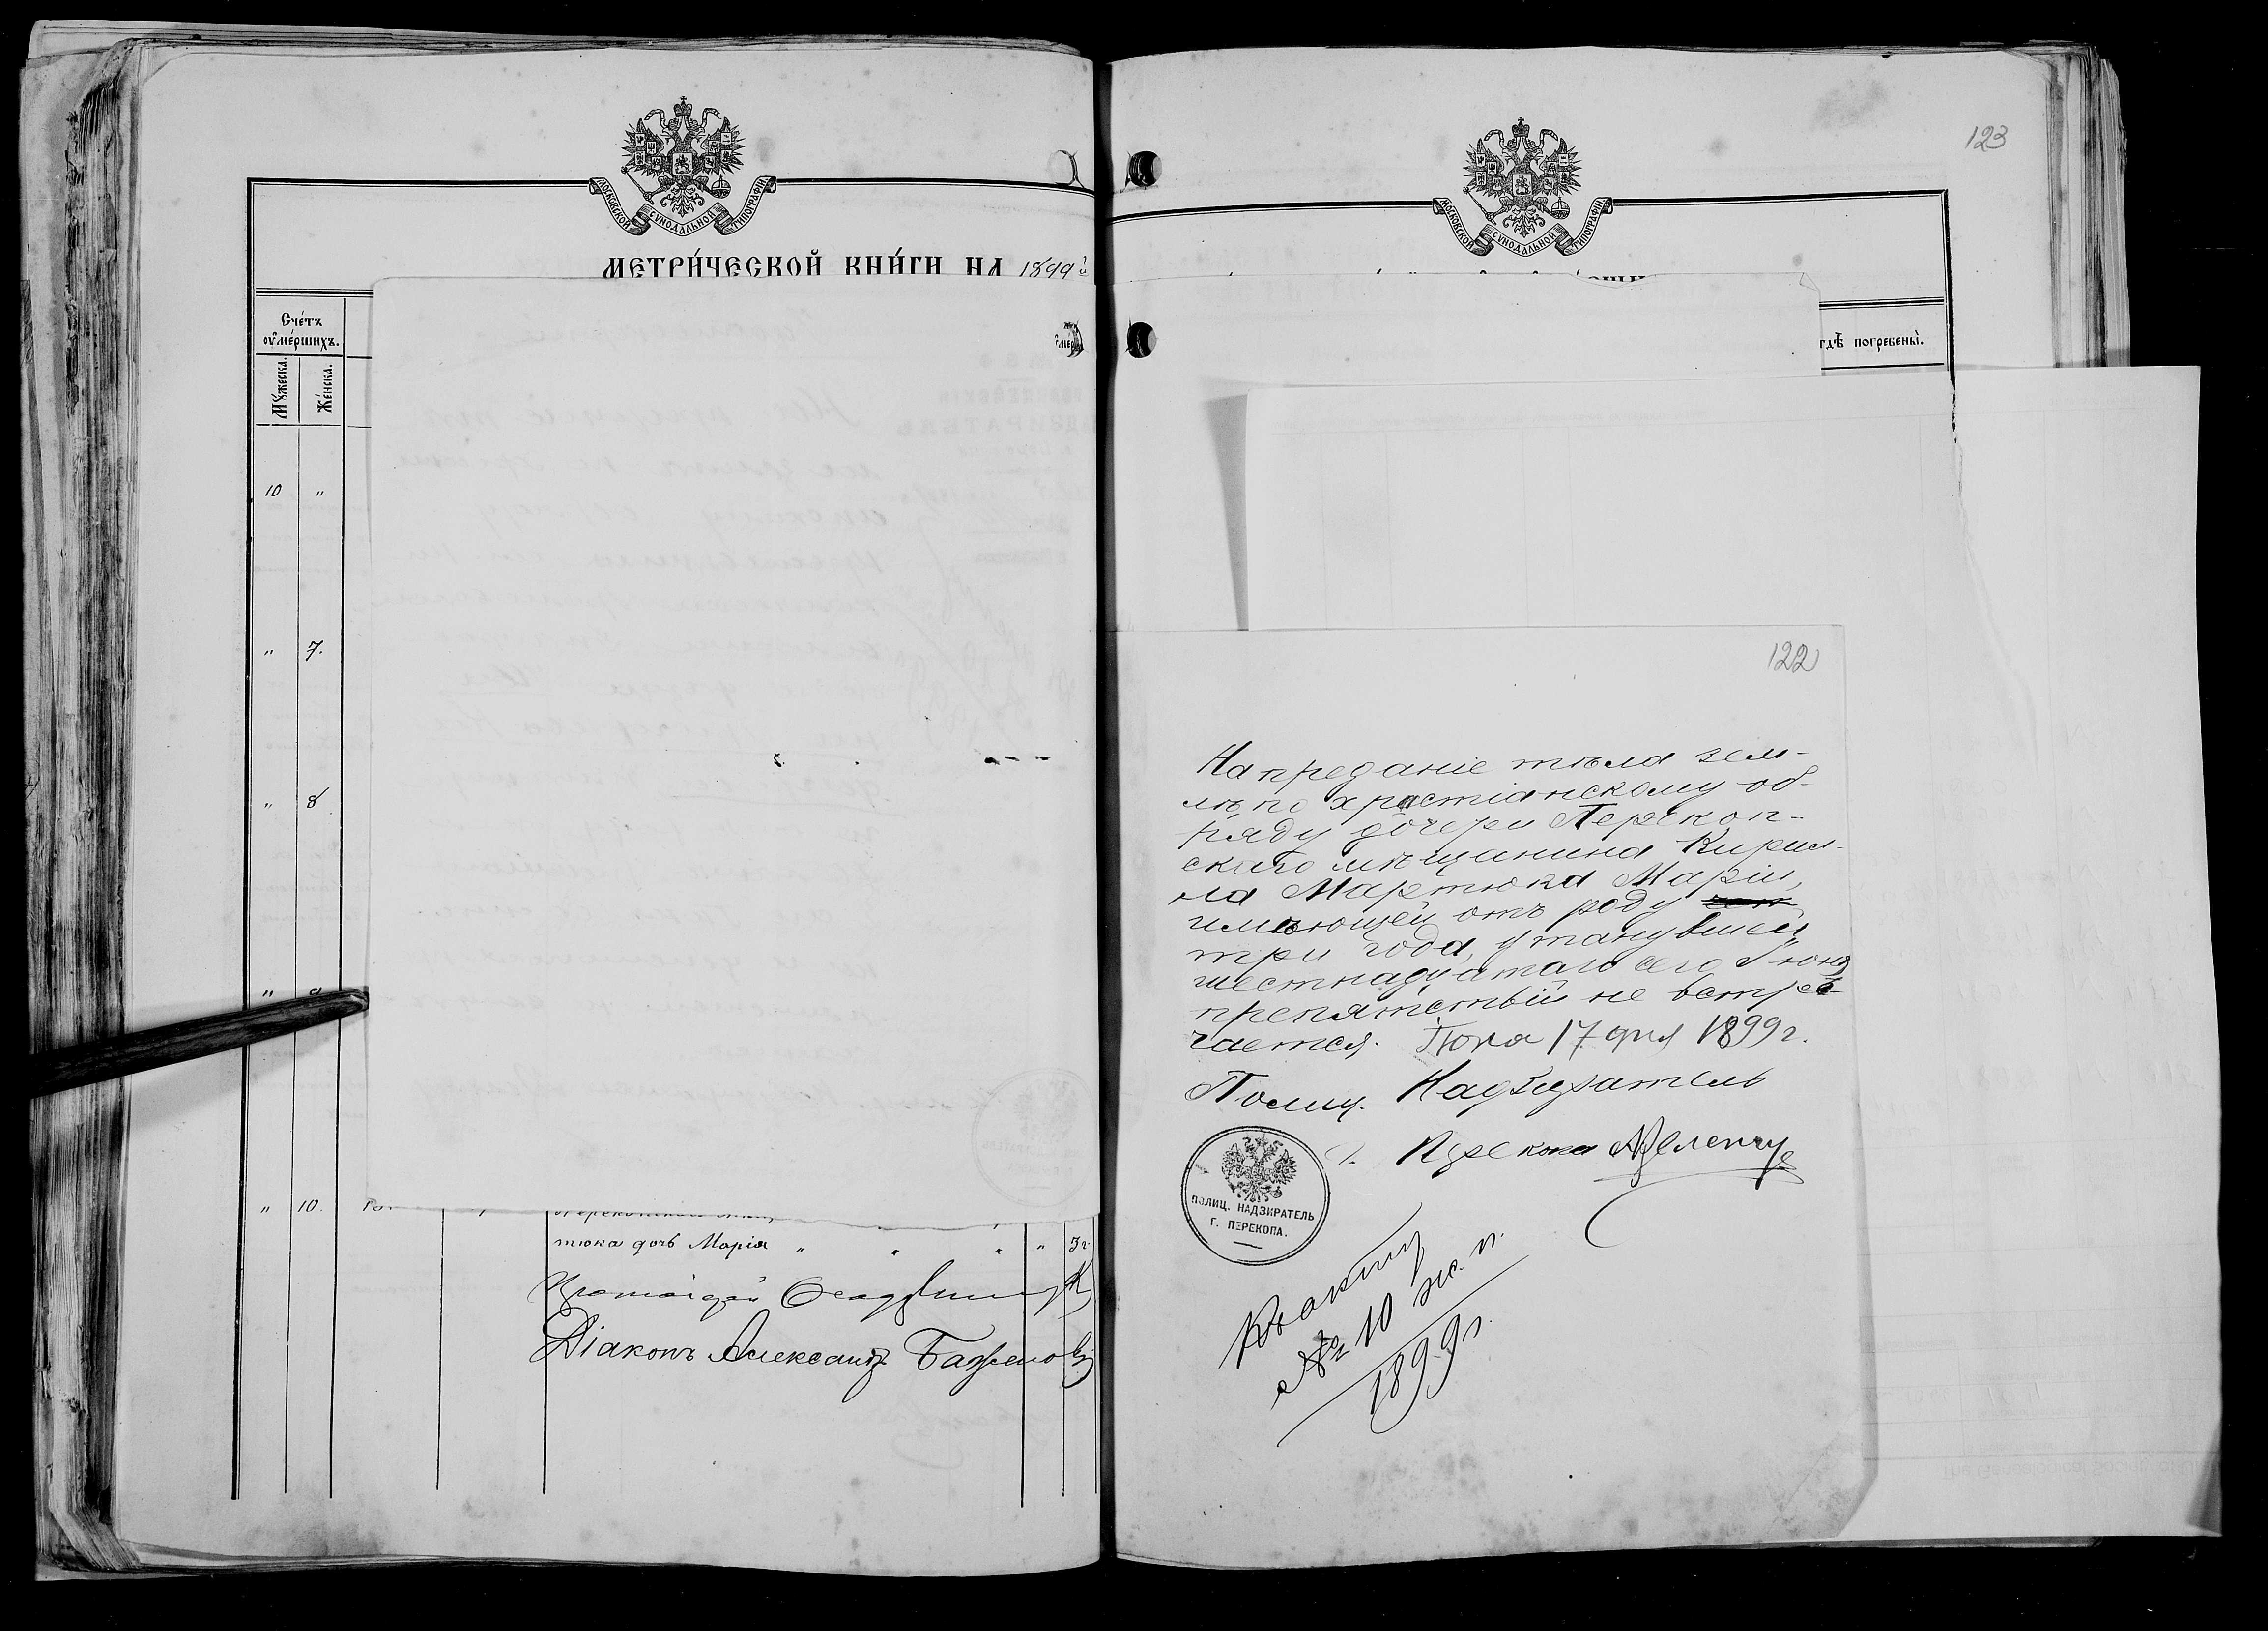 МОСКОВСКОЙ СѴНОДАЛЬНОЙ ТИПОГРАФІИ
МЕТРИ́ЧЕСКОЙ КНИ́ГИ НА 1899й
Счéтъ ᲂу҆мéршихъ.
Мꙋ́жеска. Же́нска.
10 "
" 7.
" 8
" 9
" 10.
тюка дочь Марія " " " " 3 г.
Діаконъ Александръ Баженовъ
123
МОСКОВСКОЙ СѴНОДАЛЬНОЙ ТИПОГРАФІИ
гдѣ погребены̀.
122
На преданіе тѣла зем-
лѣ по христіанскому об-
ряду дочери Перекоп-
скаго мѣщанина Кирил-
ла Мартюка Маріи,
имѣющей отъ роду
три года, утанувшей
шестнадцатаго сего Іюня
препятствій не встре-
чается. Іюня 17 дня 1899 г.
Полиц. Надзиратель
г. Перекопа
ПОЛИЦ. НАДЗИРАТЕЛЬ
Г. ПЕРЕКОПА.
Къ акту
№ 10 ж. п.
1899 г.